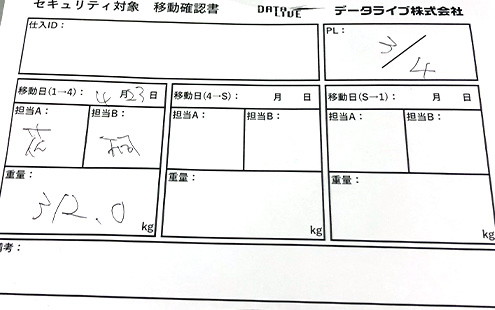 セキュリティ対象 移動確認書 DATA LIVE データライブ株式会社
仕入ID： PL： 3/4
移動日(1→4)： 4月23日 移動日(4→S)： 月 日 移動日(S→1)： 月 日
担当A： 担当B： 担当A： 担当B： 担当A： 担当B：
重量： 重量： 重量：
312.0 kg kg kg
備考：